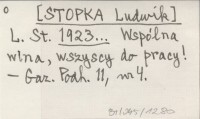 [STOPKA Ludwik]
L. St. 1923... Wspólna
wina, wszyscy do pracy!
– Gaz. Podh. 11, nr 4.